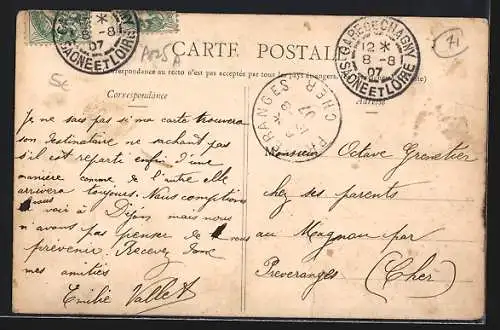 CARTE POSTALE
Correspondance au recto n'est pas acceptée par tous les pays étrangers
Correspondance
Adresse
GARE DE CHAGNY
SAONE ET LOIRE
12 *
8 -8
07
GARE DE CHAGNY
12 *
8 -8
07
SAONE ET LOIRE
PREVERANGES
CHER
71
5c
Je ne sais pas si ma carte trouvera
son destinataire ne sachant pas
s'il est reparti enfin d'une
manière comme de l'autre elle
arrivera toujours. Nous comptions
vous voir à Dijon mais nous
n'avons pas penser de vous
prévenir. Recevez donc
mes amitiés
Emilie Vallet
Monsieur Octave Grenetier
chez ses parents
au Magnau par
Preveranges (Cher)